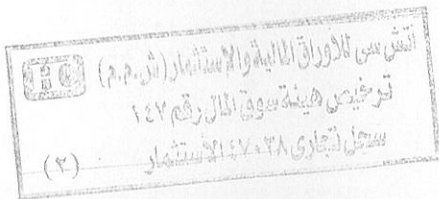 HC
اتش سى للأوراق المالية والإستثمار (ش.م.م)
ترخيص هيئة سوق المال رقم ١٤٧
سجل تجارى ٤٧٠٣٨ الاستثمار
(٣)